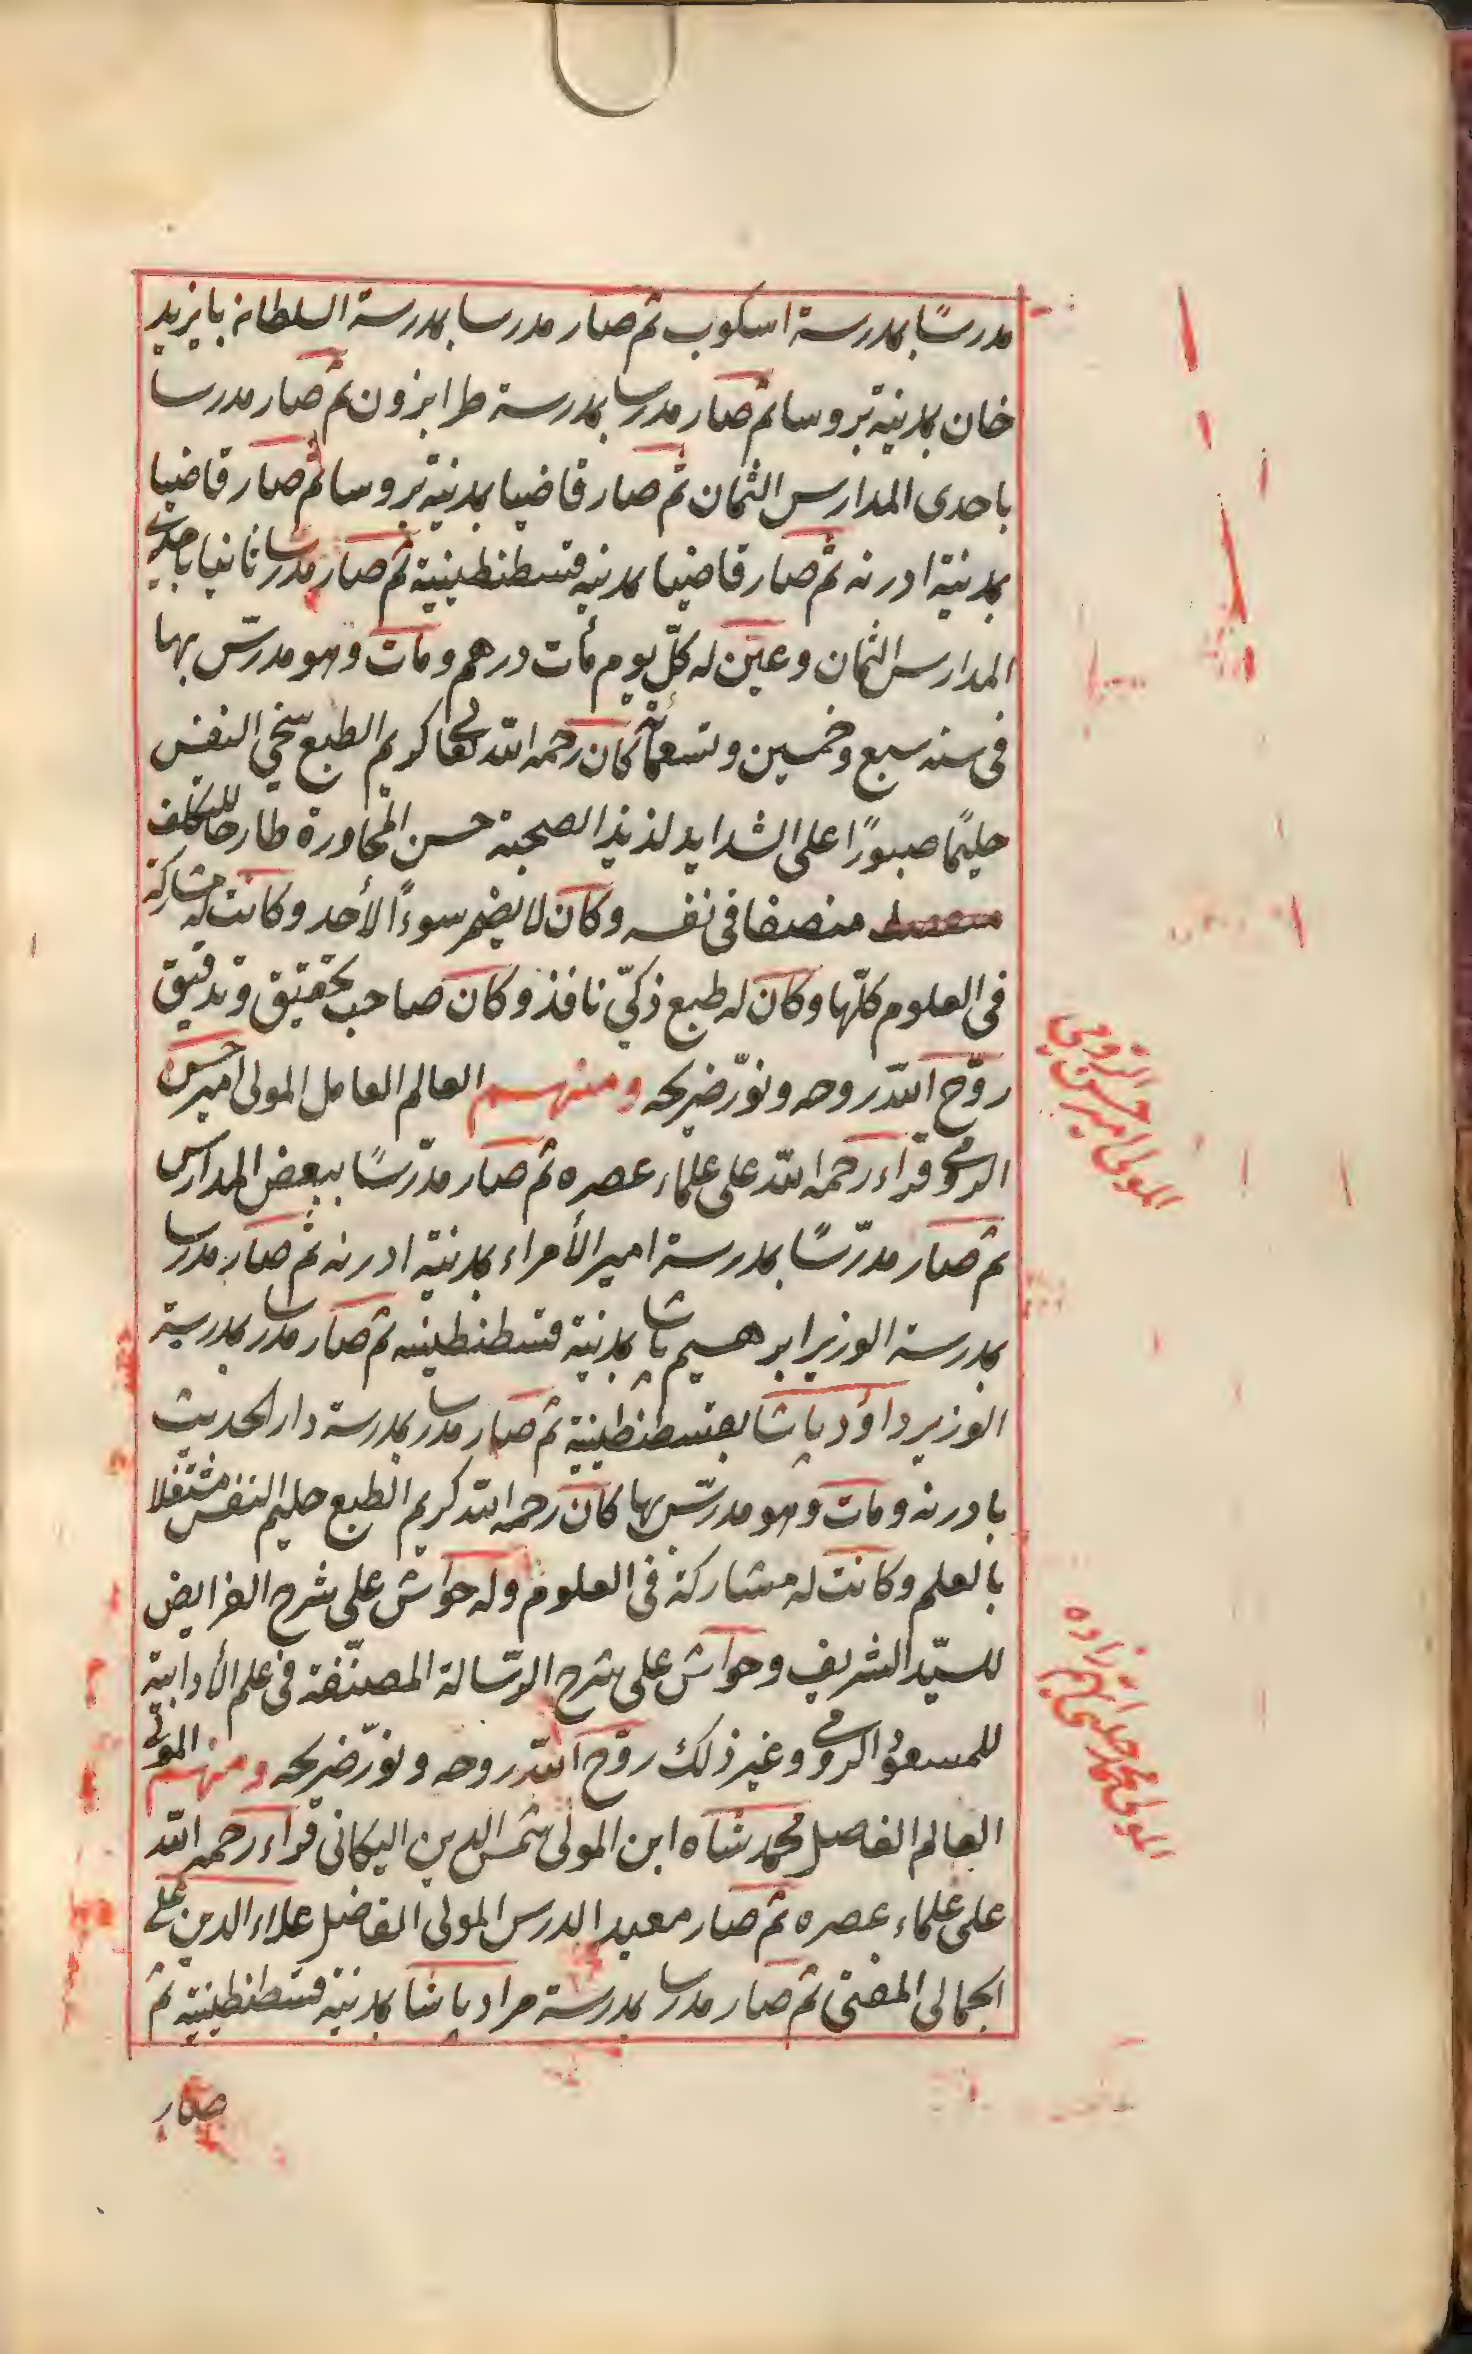 مدرسًا بمدرسة اسكوب ثم صار مدرسا بمدرسة السلطان بايزيد
خان بمدينة بروسا ثم صار مدرسا بمدرسة طرابزون ثم صار مدرسا
باحدى المدارس الثمان ثم صار قاضيا بمدينة بروسا ثم صار قاضيا
بمدينة ادرنه ثم صار قاضيا بمدينه قسطنطينية ثم صار مدرسا ثانيا باحدى
المدارس الثمان وعيّن له كلّ يوم مأت درهم ومات وهو مدرسّ بها
فى سنه سبع وخمسين وتسعمائة كان رحمه الله تعالى كريم الطبع سخي النفس
حليمًا صبورًا على الشدايد لذيذ الصحبة حسن المحاورة طارحا للتكلف
منصفا فى نفسه وكان لا يضمر سوءًا لأحد وكانت له مشاركة
فى العلوم كلّها وكان له طبع ذكيّ نافذ وكان صاحب تحقيق وتدقيق
روّح الله روحه ونوّر ضريحه ومنهم العالم العامل المولى امير حسن
الرومى قراء رحمه الله على علماء عصره ثم صار مدرّسًا ببعض المدارس
ثم صار مدرّسًا بمدرسة امير الأمراء بمدينة ادرنه ثم صار مدرسا
بمدرسة الوزير ابرهيم پاشا بمدينة قسطنطينيه ثم صار مدرسا بمدرسة
الوزير داؤد پاشا بقسطنطينية ثم صار مدرسا بمدرسة دار الحديث
بادرنه ومات وهو مدرسّ بها كان رحمه الله كريم الطبع حليم النفس مشتغلا
بالعلم وكانت له مشاركة فى العلوم وله حواش على شرح الفرايض
للسيّد الشريف وحواش على شرح الرّسالة المصنّفة فى علم الأدابية
للمسعود الرومى وغير ذلك روّح الله روحه ونوّر ضريحه ومنهم المولى
العالم الفاضل محمد شاه ابن المولى شمس الدين اليكانى قراء رحمه الله
على علماء عصره ثم صار معيد الدرس المولى الفاضل علاء الدين على
الجمالى المفتى ثم صار مدرسا بمدرسة مراد پاشا بمدينة قسطنطينية ثم
صار
المولى امير حسن الرومى
المولى محمد چلبى